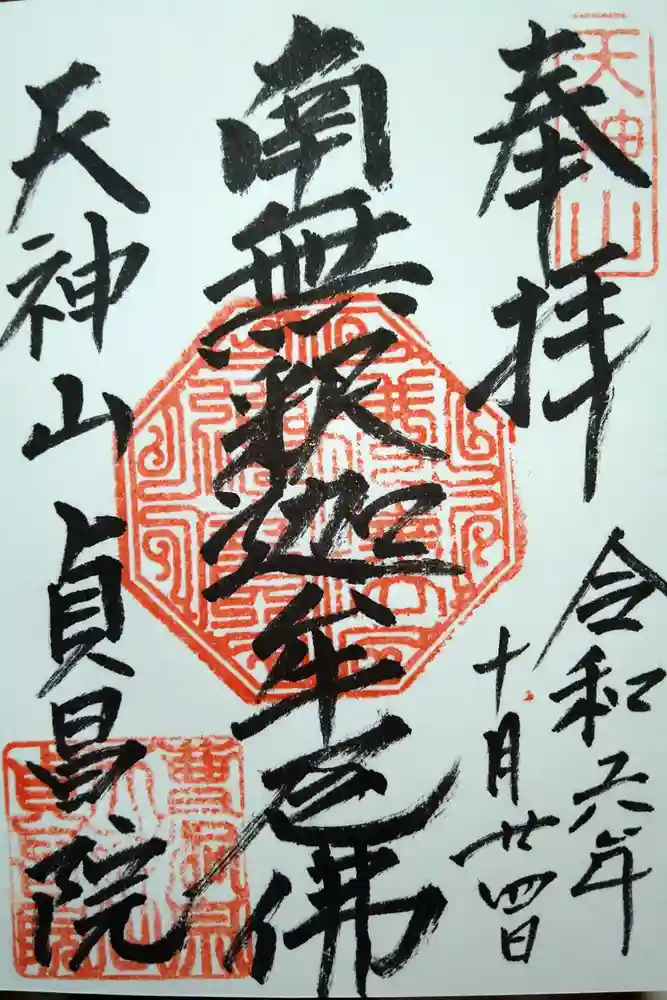 奉拝
天神山
令和六年
十月廿四日
南無釈迦牟尼佛
天神山 貞昌院